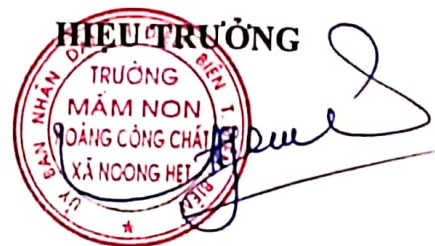 HIỆU TRƯỞNG
TRƯỜNG
MẦM NON
HOÀNG CÔNG CHẤT
XÃ NOONG HẸT
ỦY BAN NHÂN DÂN
BIÊN T.